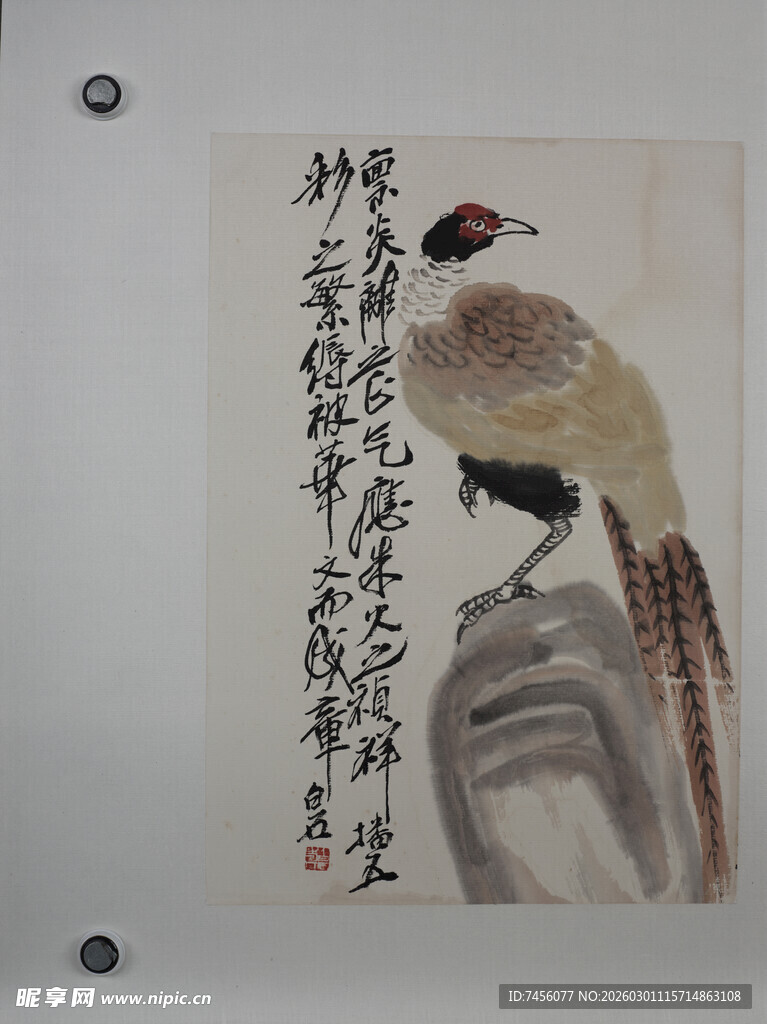 禀炎離之正气應朱火之禎祥播五
彩之繁縟被華文而成章
白石
昵享网 www.nipic.cn
ID:7456077 NO:20260301115714863108